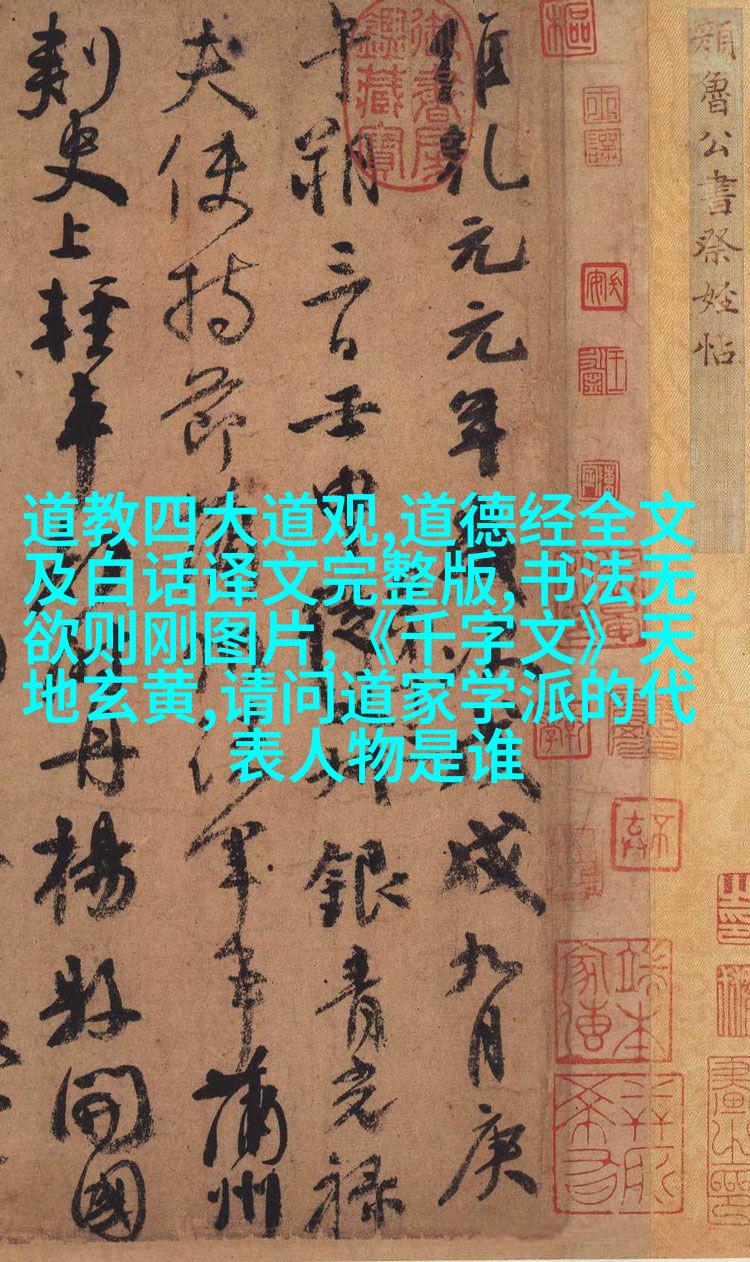 顏魯公書祭姪帖
維乾元元年戌九月庚
午朔三日壬申銀青光祿
夫使持節軍事蒲州
刺史上輕車丹楊縣開國
道教四大道观,道德经全文
及白话译文完整版,书法无
欲则刚图片,《千字文》天
地玄黄,请问道家学派的代
表人物是谁